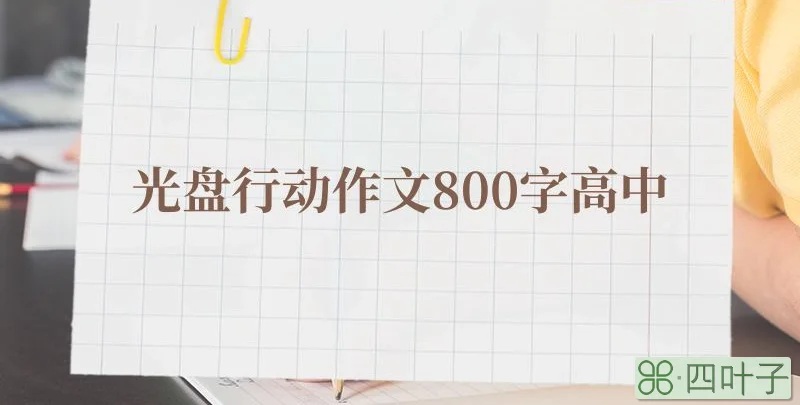 光盘行动作文800字高中
四叶子